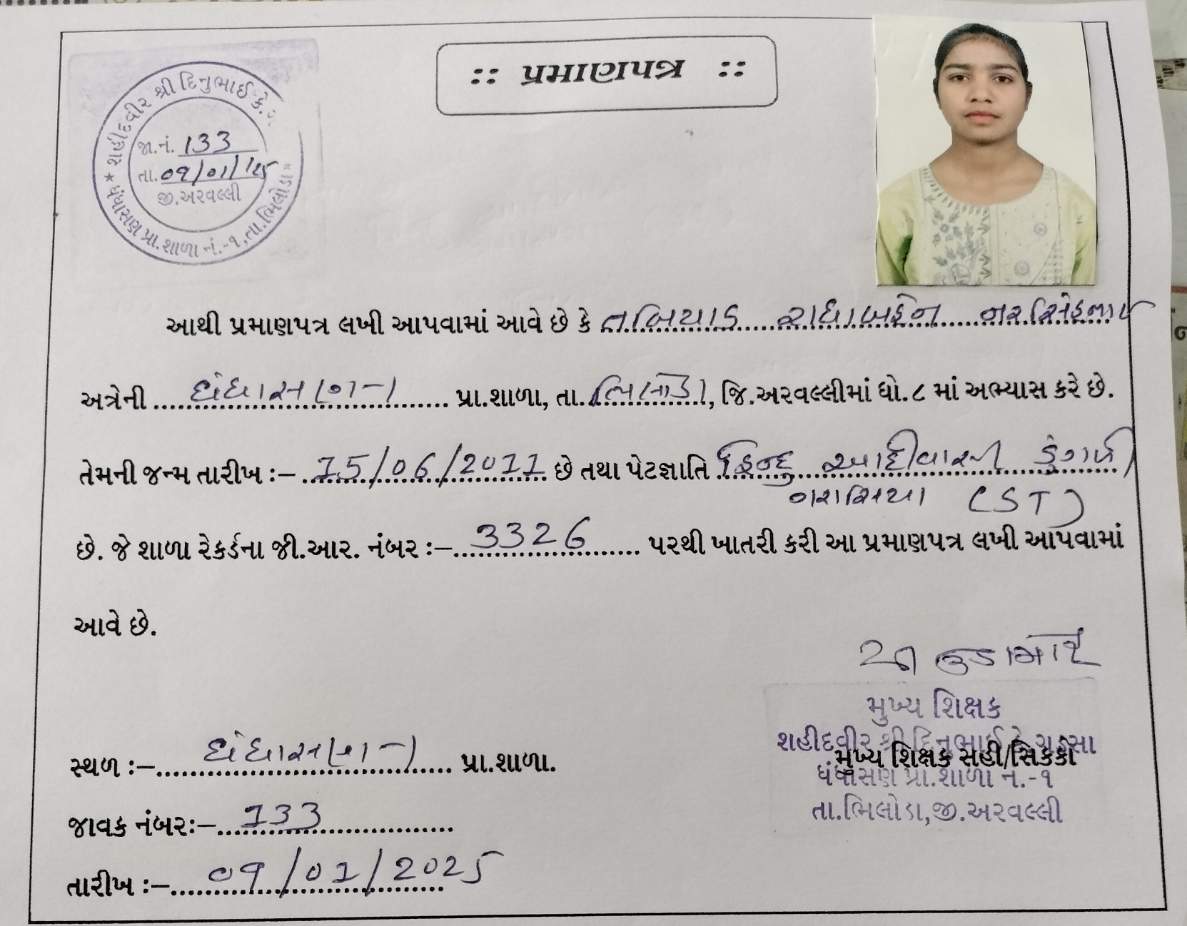 :: પ્રમાણપત્ર ::
શહીદવીર શ્રી દિનુભાઈ કે.
જા.નં. 133
તા. 09/01/25
જી.અરવલ્લી
ધંધાસણ પ્રા.શાળા નં.-૧,તા.ભિલોડા
આથી પ્રમાણપત્ર લખી આપવામાં આવે છે કે તબિયાડ રાધાબહેન નરસિંહભાઈ
અત્રેની ધંધાસણ-૧ પ્રા.શાળા, તા. ભિલોડા, જિ.અરવલ્લીમાં ધો.૮ માં અભ્યાસ કરે છે.
તેમની જન્મ તારીખ :- 15/06/2011 છે તથા પેટાજ્ઞાતિ હિન્દુ આદીવાસી ડુંગરી
ગરાસિયા (ST)
છે. જે શાળા રેકર્ડના જી.આર. નંબર :- 3326 પરથી ખાતરી કરી આ પ્રમાણપત્ર લખી આપવામાં
આવે છે.
મુખ્ય શિક્ષક
શહીદવીર શ્રી દિનુભાઈ કે ગડસા
મુખ્ય શિક્ષક સહી/સિક્કો
સ્થળ :- ધંધાસણ-૧ પ્રા.શાળા.
ધંધાસણ પ્રા.શાળા નં.-૧
તા.ભિલોડા,જી.અરવલ્લી
જાવક નંબર:- 133
તારીખ :- 09/01/2025